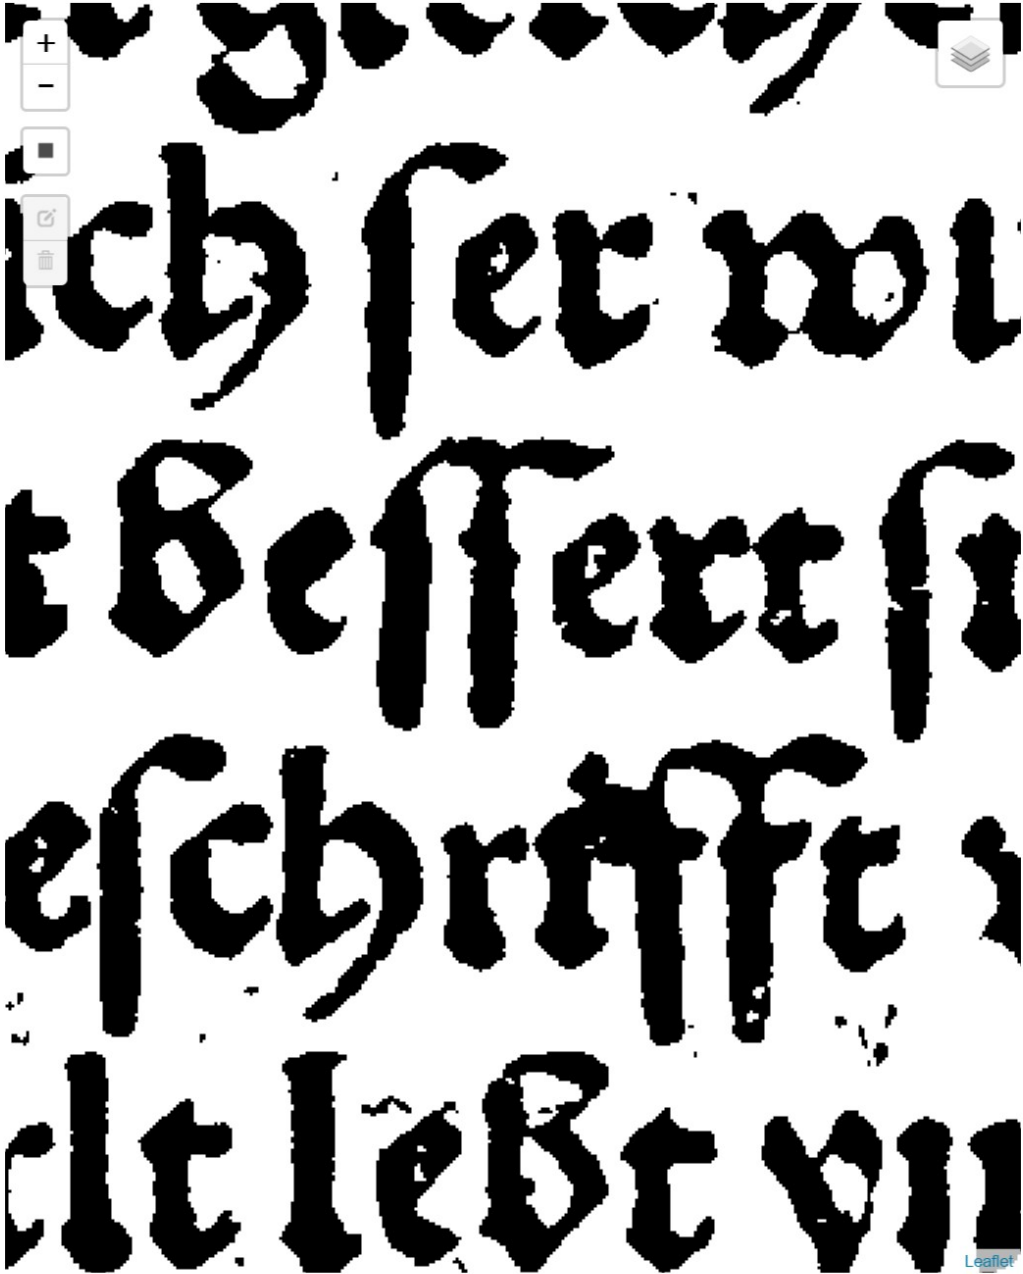 ch ſer wi
t beſſert ſi
eſchrifft
elt lebt vn
Leaflet